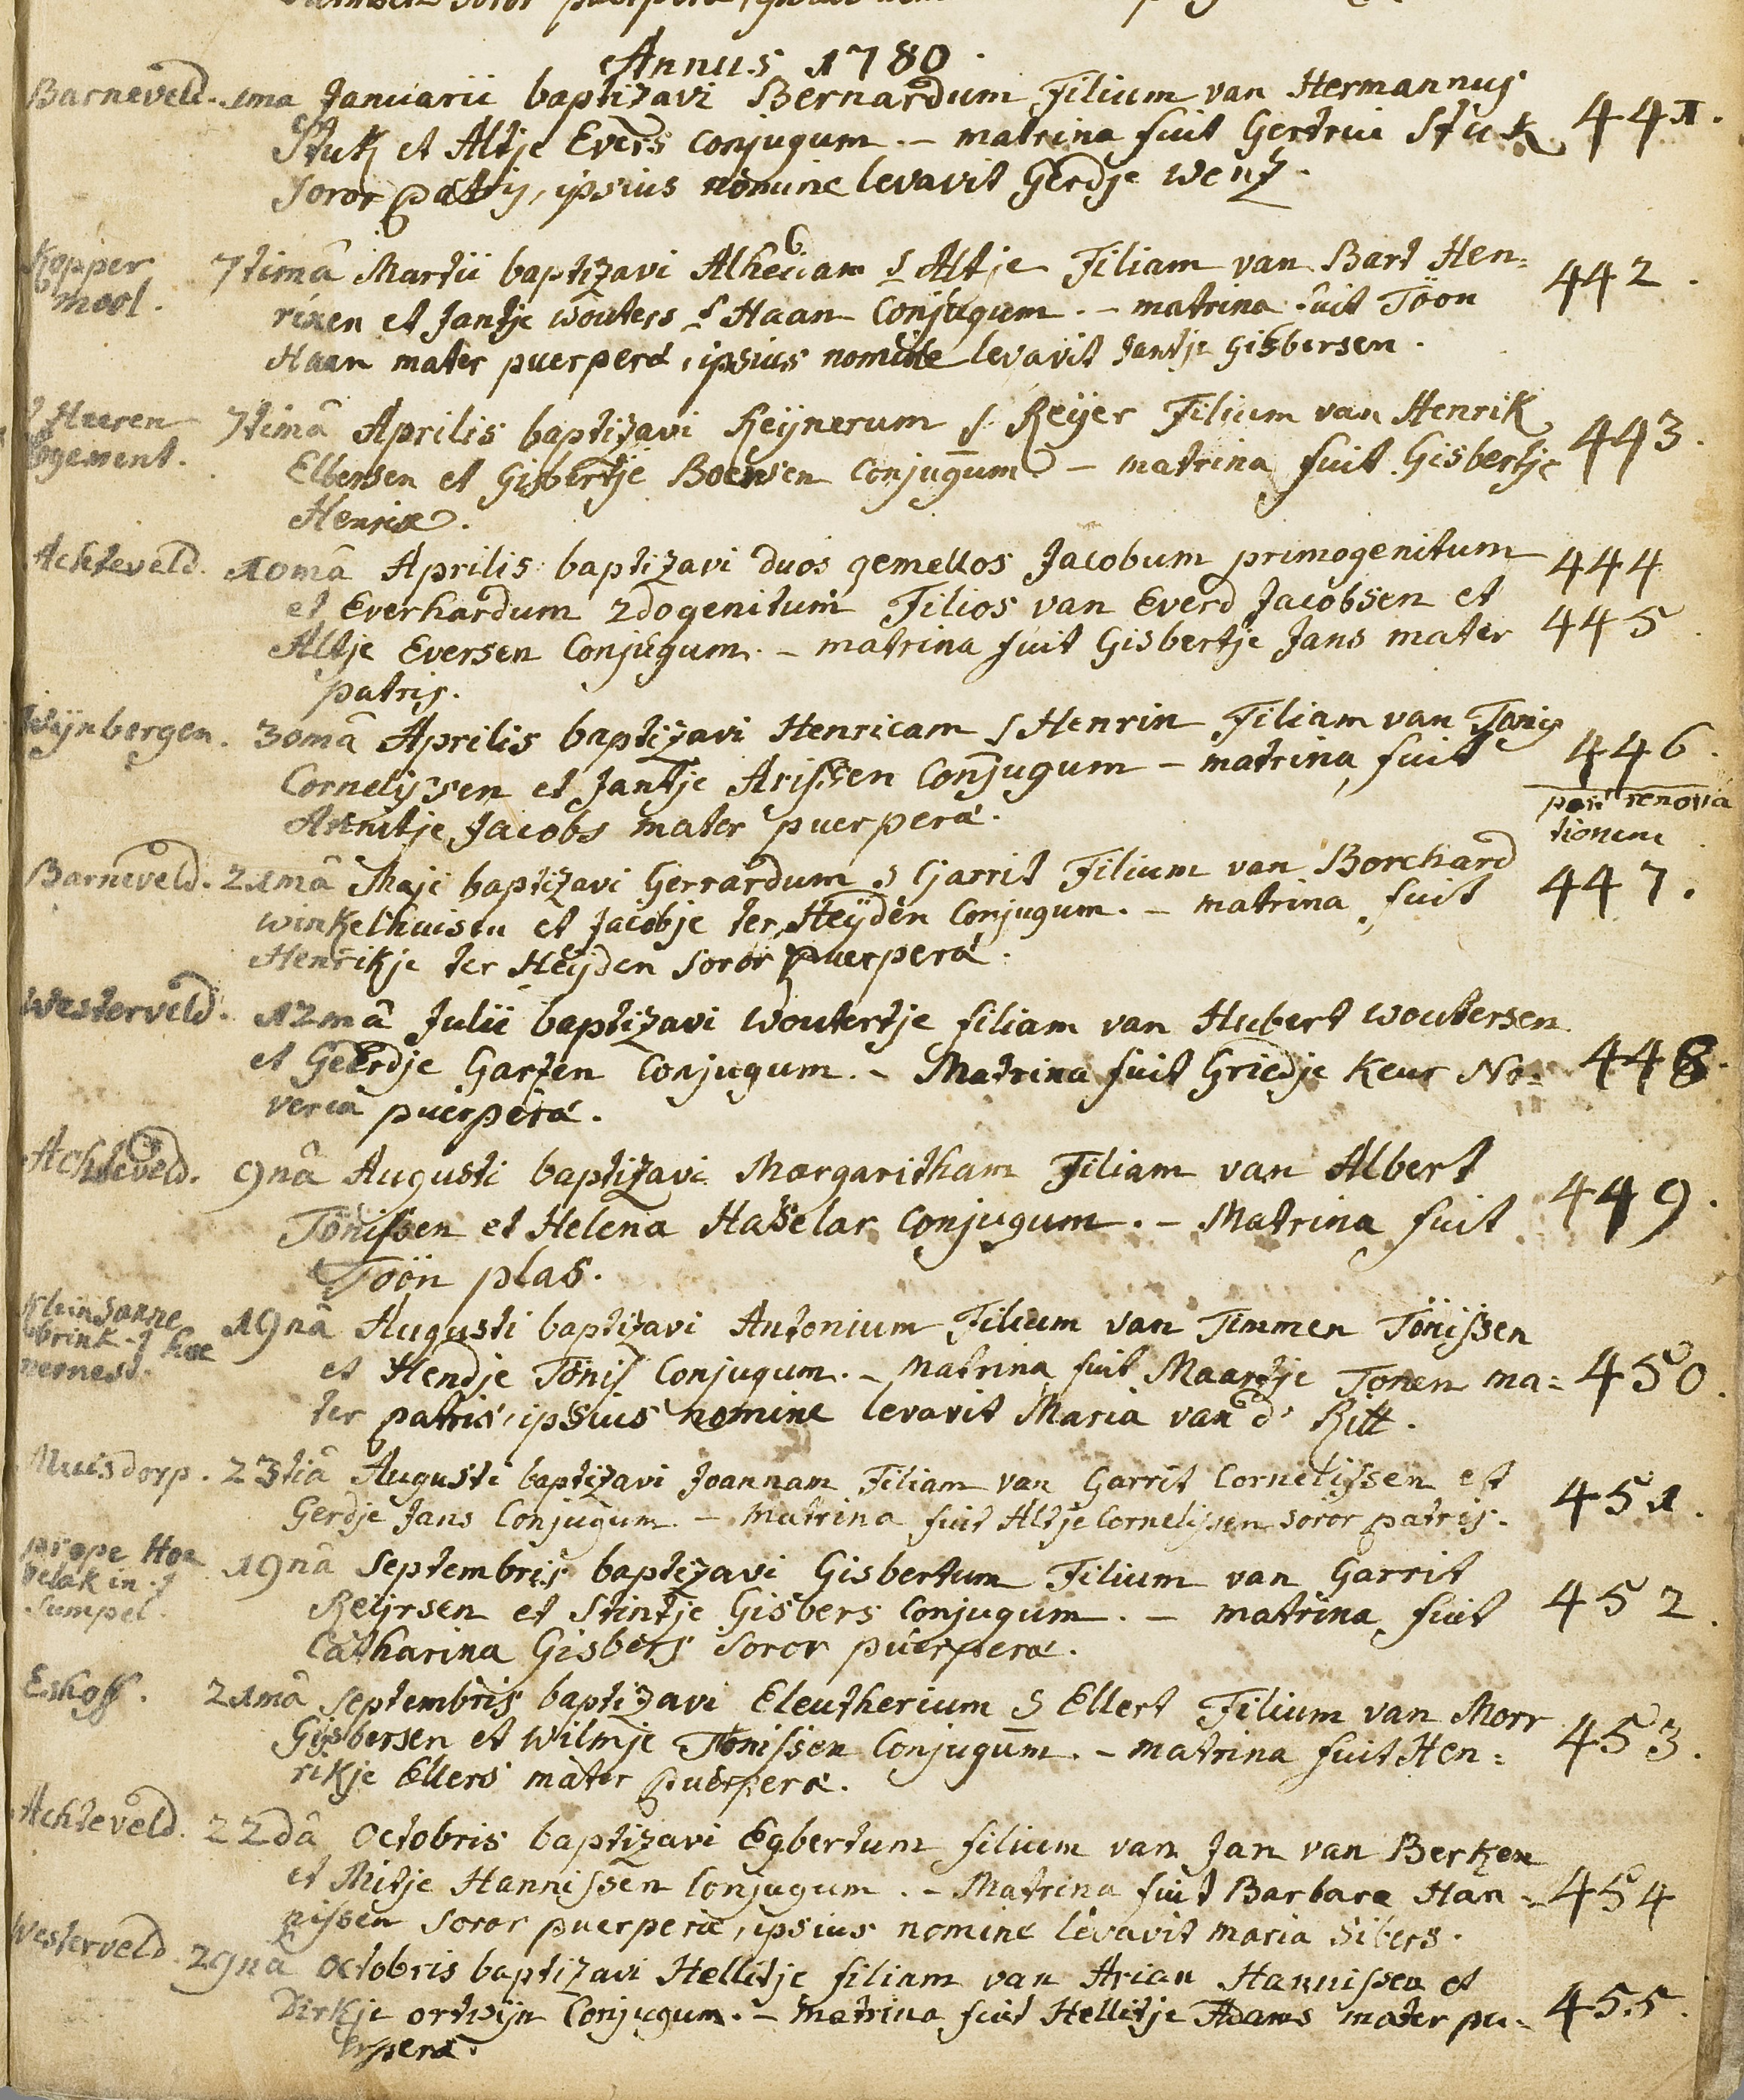 Annus 1780.
Barneveld. 1ma Januarii baptizavi Bernardum Filium van Hermannus
Stuk et Altje Evers conjugum. – matrina fuit Gertrui Stuk 441.
soror patris, ipsius nomine levavit Gerdje Wenz.
Kopper 7timâ Martii baptizavi Alheidam S Altje Filiam van Bart Hen= 442.
mool. rixen et Jantje Wouters S Haan Conjugum. – matrina fuit Töon
Haan mater puerperæ, ipsius nomine levavit Jantje Gisbersen.
't Heeren 7timâ Aprilis baptizavi Reijnerum S Reijer Filium van Henrik 443.
logement. Elbersen et Gisbertje Boensen Conjugum – matrina fuit Gisbertje
Henrix.
Achteveld. 10mâ Aprilis baptizavi duos gemellos Jacobum primogenitum 444
et Everhardum 2dogenitum Filios van Everd Jacobsen et 445.
Altje Eversen Conjugum. – matrina fuit Gisbertje Jans mater
patris.
Wijnbergen. 30mâ Aprilis baptizavi Henricam S Henrin Filiam van Tonis
Cornelissen et Jantje Arissen Conjugum – matrina fuit 446.
Arnitje Jacobs mater puerperæ. post renova
tionem
Barneveld. 21mâ Maji baptizavi Gerrardum S Garrit Filium van Borchard 447.
Winkelhuisen et Jacobje ter Heijden Conjugum. – matrina fuit
Henrikje ter Heijden soror puerperæ.
Westerveld. 12mâ Julii baptizavi Woutertje filiam van Hubert Woutersen
et Geerdje Garten Conjugum. – Matrina fuit Griedje Keur No= 448.
verca puerperæ.
Achteveld. 9nâ Augusti baptizavi Margaritham Filiam van Albert
Tönissen et Helena Haselar Conjugum. – Matrina fuit 449.
Töön plas.
Klein Sanne 19nâ Augusti baptizavi Antonium Filium van Timmen Tönissen
brink
et Hendje Tönis Conjugum. – Matrina fuit Maartje Tonen ma= 450.
ter patris, ipsius nomine levavit Maria van d' Ritt.
Muisdorp. 23tiâ Augusti baptizavi Joannam Filiam van Garrit Cornelissen et 451.
Gerdje Jans Conjugum. – Matrina fuit Altje Cornelissen soror patris.
prope Hoe 19nâ Septembris baptizavi Gisbertum Filium van Garrit
velak in 't Reijrsen et Stintje Gisbers Conjugum. – matrina fuit 452.
Sumpel. Catharina Gisbers soror puerperæ.
Eskoff. 21mâ Septembris baptizavi Eleutherium S Ellert Filium van Morr
Gijsbersen et Wilmje Tönissen Conjugum. – matrina fuit Hen= 453.
rikje Ellers mater puerperæ.
Achteveld. 22dâ Octobris baptizavi Egbertum filium van Jan van Berken
et Mitje Hannissen Conjugum. – Matrina fuit Barbara Han= 454
nissen soror puerperæ, ipsius nomine levavit maria Sibers.
Westerveld. 29nâ Octobris baptizavi Hellitje filiam van Arian Hannissen et
Dirkje ortwijn Conjugum. – matrina fuit Hellitje Adams mater pu= 455.
erperæ.